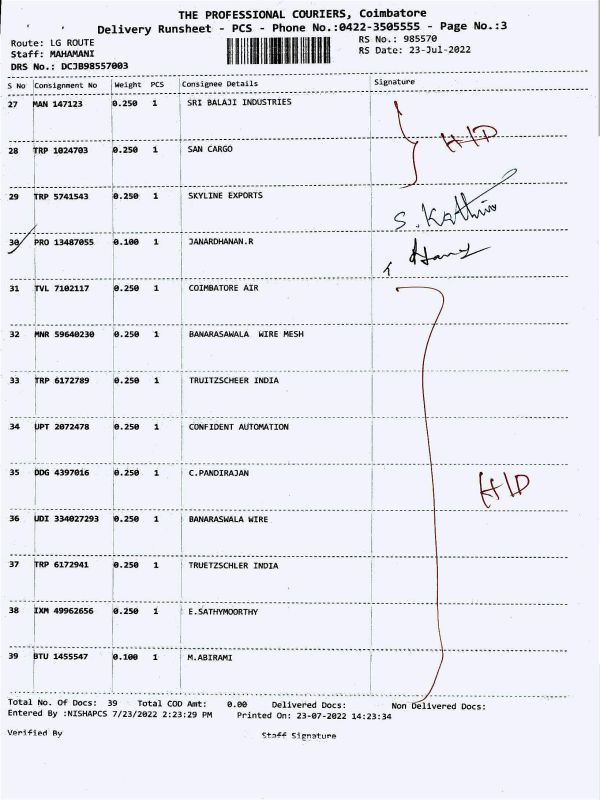 THE PROFESSIONAL COURIERS, Coimbatore
Delivery Runsheet - PCS - Phone No.:0422-3505555 - Page No.:3
Route: LG ROUTE RS No.: 985570
Staff: MAHAMANI RS Date: 23-Jul-2022
DRS No.: DCJB98557003
S No Consignment No Weight PCS Consignee Details Signature
27 MAN 147123 0.250 1 SRI BALAJI INDUSTRIES
H/D
28 TRP 1024703 0.250 1 SAN CARGO
29 TRP 5741543 0.250 1 SKYLINE EXPORTS
30 PRO 13487055 0.100 1 JANARDHANAN.R
31 TVL 7102117 0.250 1 COIMBATORE AIR
32 MNR 59640230 0.250 1 BANARASAWALA WIRE MESH
33 TRP 6172789 0.250 1 TRUITZSCHEER INDIA
34 UPT 2072478 0.250 1 CONFIDENT AUTOMATION
35 DDG 4397016 0.250 1 C.PANDIRAJAN
H/D
36 UDI 334027293 0.250 1 BANARASWALA WIRE
37 TRP 6172941 0.250 1 TRUETZSCHLER INDIA
38 IXM 49962656 0.250 1 E.SATHYMOORTHY
39 BTU 1455547 0.100 1 M.ABIRAMI
Total No. Of Docs: 39 Total COD Amt: 0.00 Delivered Docs: Non Delivered Docs:
Entered By :NISHAPCS 7/23/2022 2:23:29 PM Printed On: 23-07-2022 14:23:34
Verified By Staff Signature